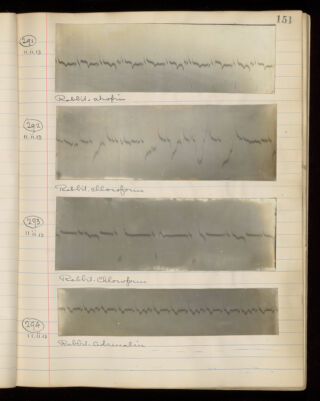 151
291
11.11.13
Rabbit. atropin
292
11.11.13
Rabbit. chloroform
293
11.11.13
Rabbit. Chloroform
294
11.11.13
Rabbit. Adrenalin